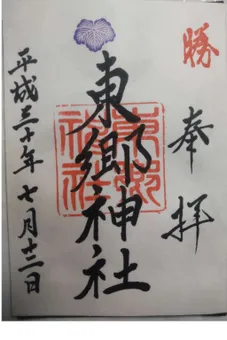 勝
奉拝
東郷神社
東郷神社
平成三十年七月十二日